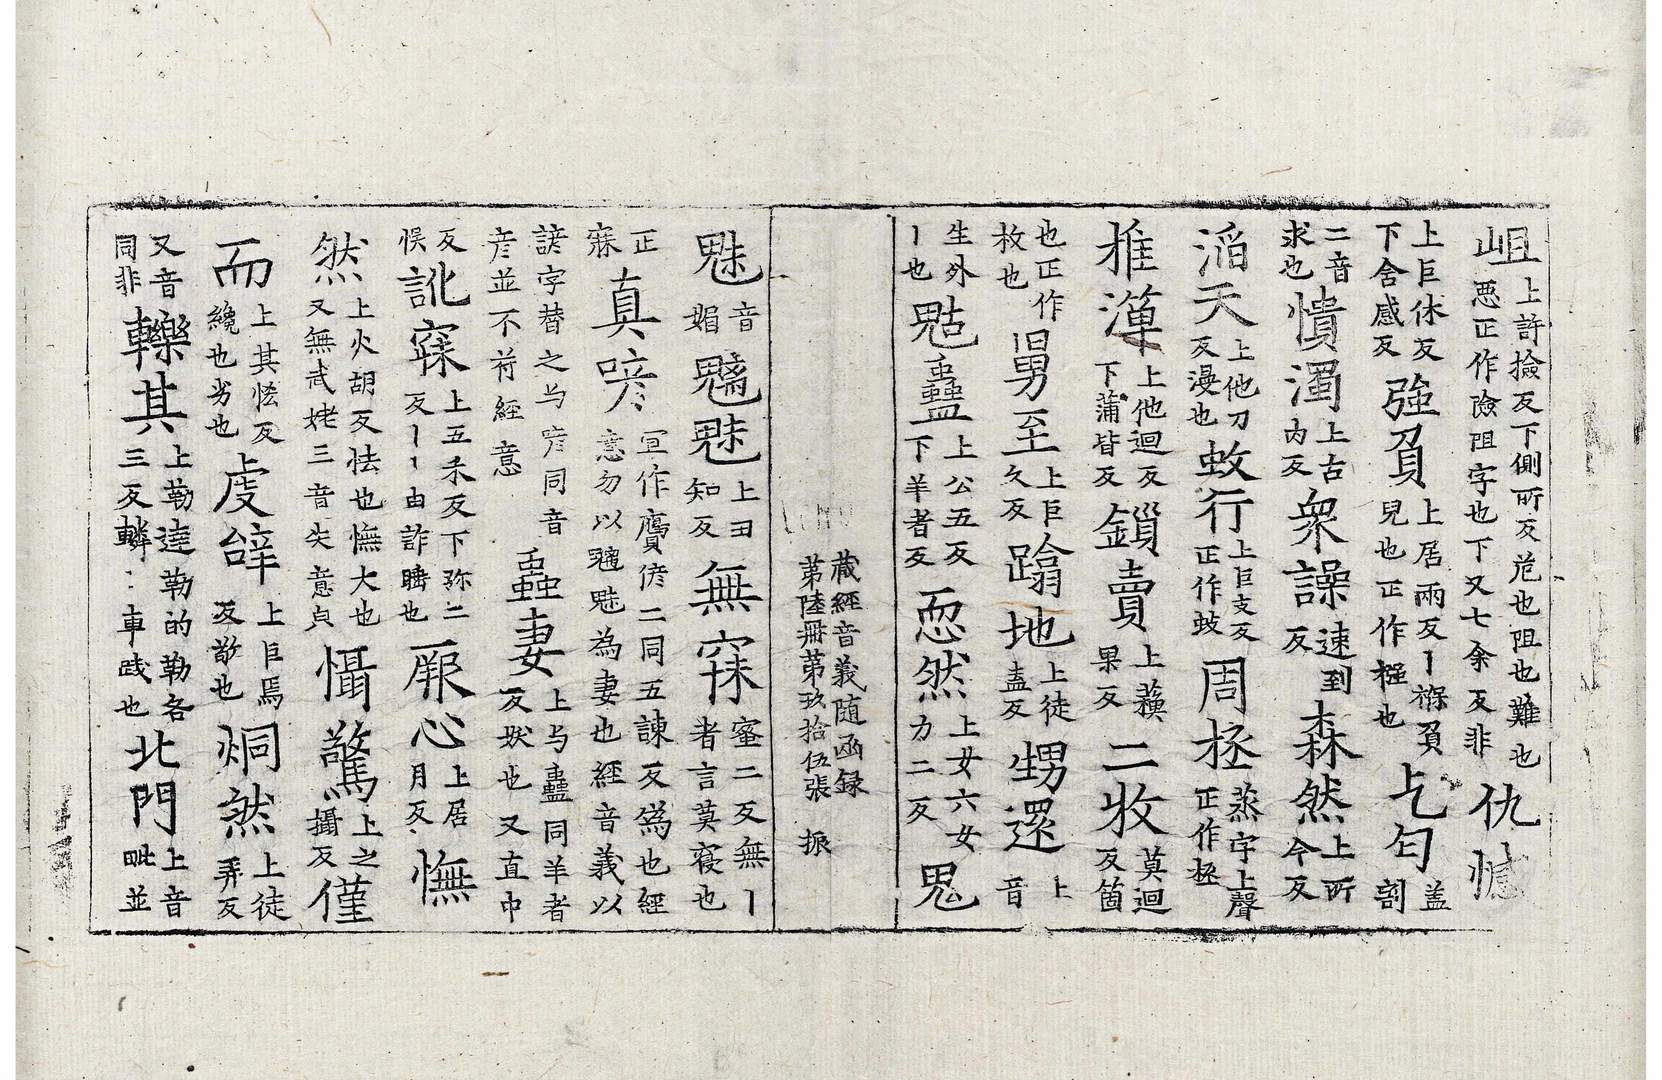 岨上許撿反下側所反危也阻也難也惡正作險阻字也下又七余反非仇憾
上巨休反下含感反強負上居兩反丨褓負兒也正作襁也乞匄蓋割
二音求也憒濁上古內反衆譟速到反森然上所今反
滔天上他刀反漫也蚑行上巨支反正作蚑周拯蒸字上聲正作拯
推𥱼上他迴反下蒲皆反鎻賣上蘓果反二枚莫迴反箇
也正作枚也舅至上巨久反蹹地上徒盍反甥還上音
生外丨也鬾蠱上公五反下羊者反恧然上女六女力二反鬼
藏經音義随函録
第陸冊第玖拾伍張 振
魅音媚魑魅上丑知反無寐蜜二反無丨者言莫寑也
正寐真喭宜作贗偐二同五諫反爲也經意勿以魑魅為妻也經音義以
諺字替之与喭同音彦並不符經意蠱妻上与蠱同羊者反妖也又直中
反悮訛寐上五禾反下弥二反丨丨由詐𥈭也厥心上居月反憮
然上火胡反怯也憮大也又無武姥三音失意皃慴驚上之攝反僅
而上其恡反纔也劣也虔辥上巨焉反敬也烔然上徒弄反
又音同非轢其上勒逹勒的勒各三反轔丶車践也北門上音毗並